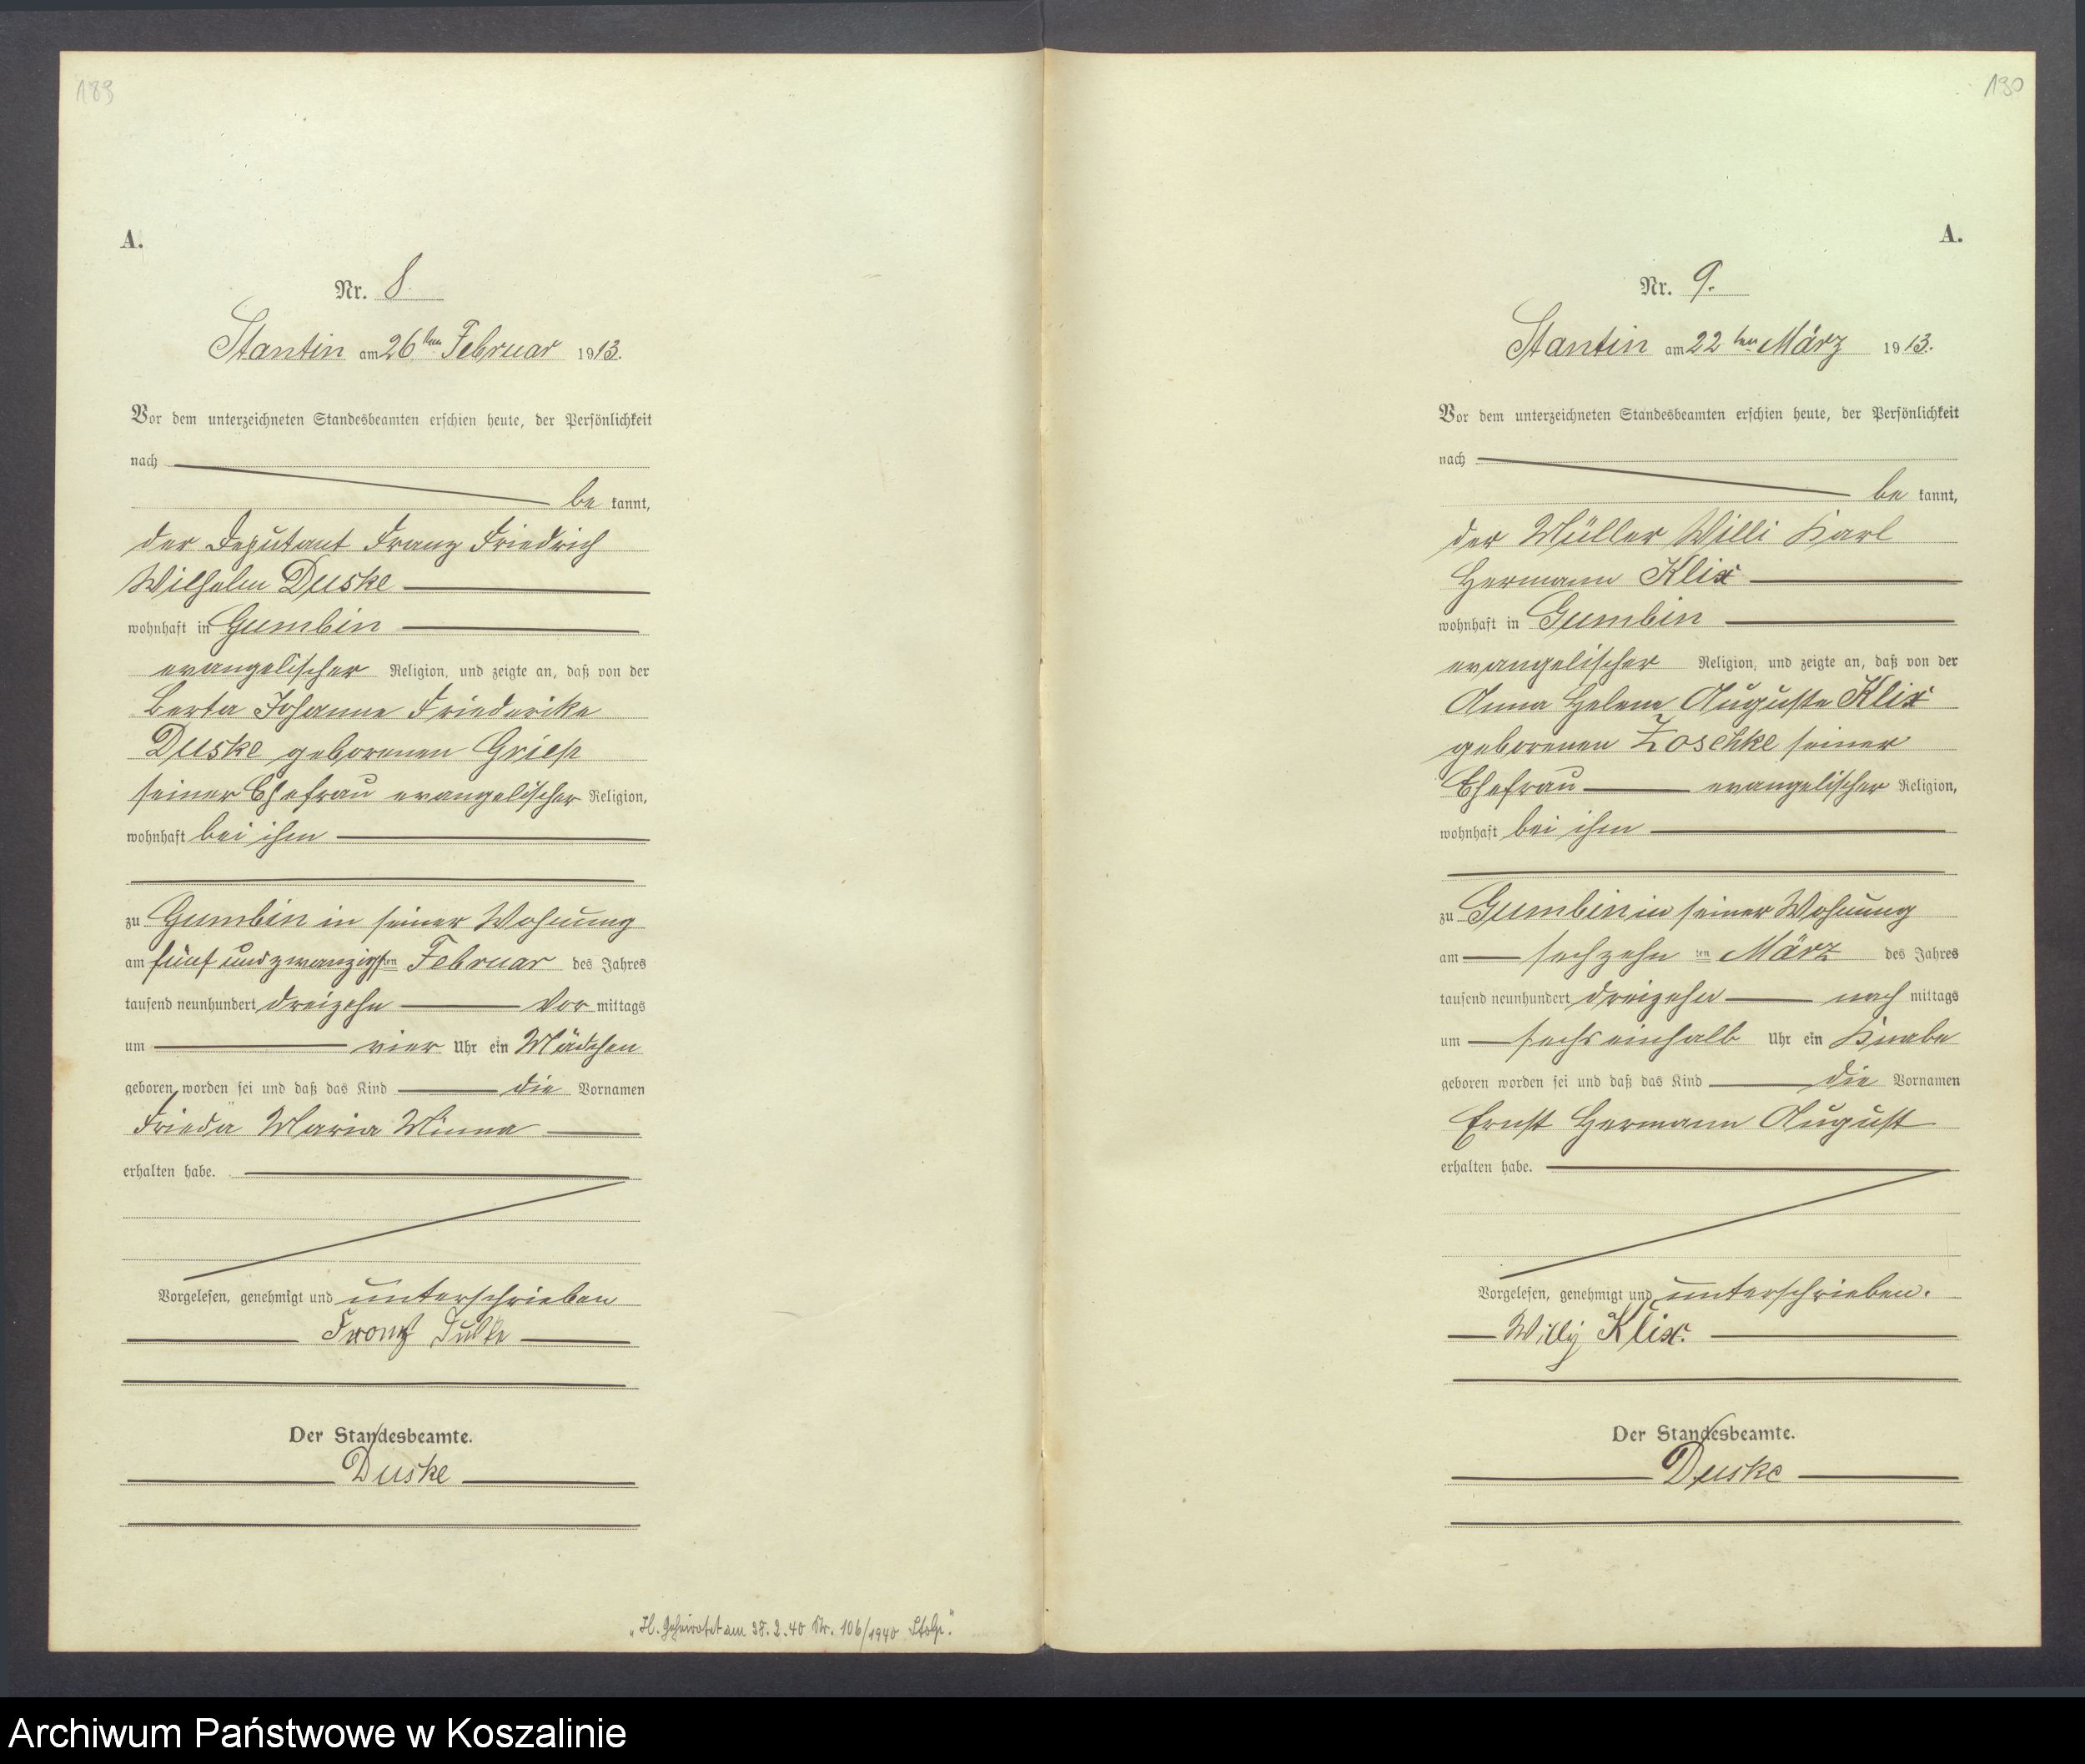 189
A.
Nr. 8.
Stantin am 26ten Februar 1913.
Vor dem unterzeichneten Standesbeamten erschien heute, der Persönlichkeit
nach
be kannt,
der Deputant Franz Friedrich
Wilhelm Duske
wohnhaft in Gumbin
evangelischer Religion, und zeigte an, daß von der
Berta Johanne Friederike
Duske geborenen Griep
seiner Ehefrau evangelischer Religion,
wohnhaft bei ihm
zu Gumbin in seiner Wohnung
am fünf und zwanzigsten Februar des Jahres
tausend neunhundert dreizehn Vor mittags
um vier Uhr ein Mädchen
geboren worden sei und daß das Kind die Vornamen
Frieda Maria Minna
erhalten habe.
Vorgelesen, genehmigt und unterschrieben
Franz Duske
Der Standesbeamte.
Duske
„H. Geheiratet am 2. 40 Nr. 106/1940 Stolp."
190
A.
Nr. 9.
Stantin am 22ten März 1913.
Vor dem unterzeichneten Standesbeamten erschien heute, der Persönlichkeit
nach
be kannt,
der Müller Willi Karl
Hermann Klix
wohnhaft in Gumbin
evangelischer Religion, und zeigte an, daß von der
Anna Helene Auguste Klix
geborenen Zoschke seiner
Ehefrau evangelischer Religion,
wohnhaft bei ihm
zu Gumbin in seiner Wohnung
am sechzehn ten März des Jahres
tausend neunhundert dreizehn nach mittags
um sechs einhalb Uhr ein Knabe
geboren worden sei und daß das Kind die Vornamen
Ernst Hermann August
erhalten habe.
Vorgelesen, genehmigt und unterschrieben.
Willy Klix.
Der Standesbeamte.
Duske
Archiwum Państwowe w Koszalinie